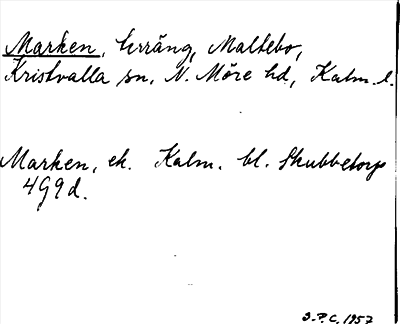 Marken, terräng, Maltebo,
Kristvalla sn, N. Möre hd, Kalm. l.
Marken, ek. Kalm. bl. Skubbetorp
4G9d.
S.P.C. 1957